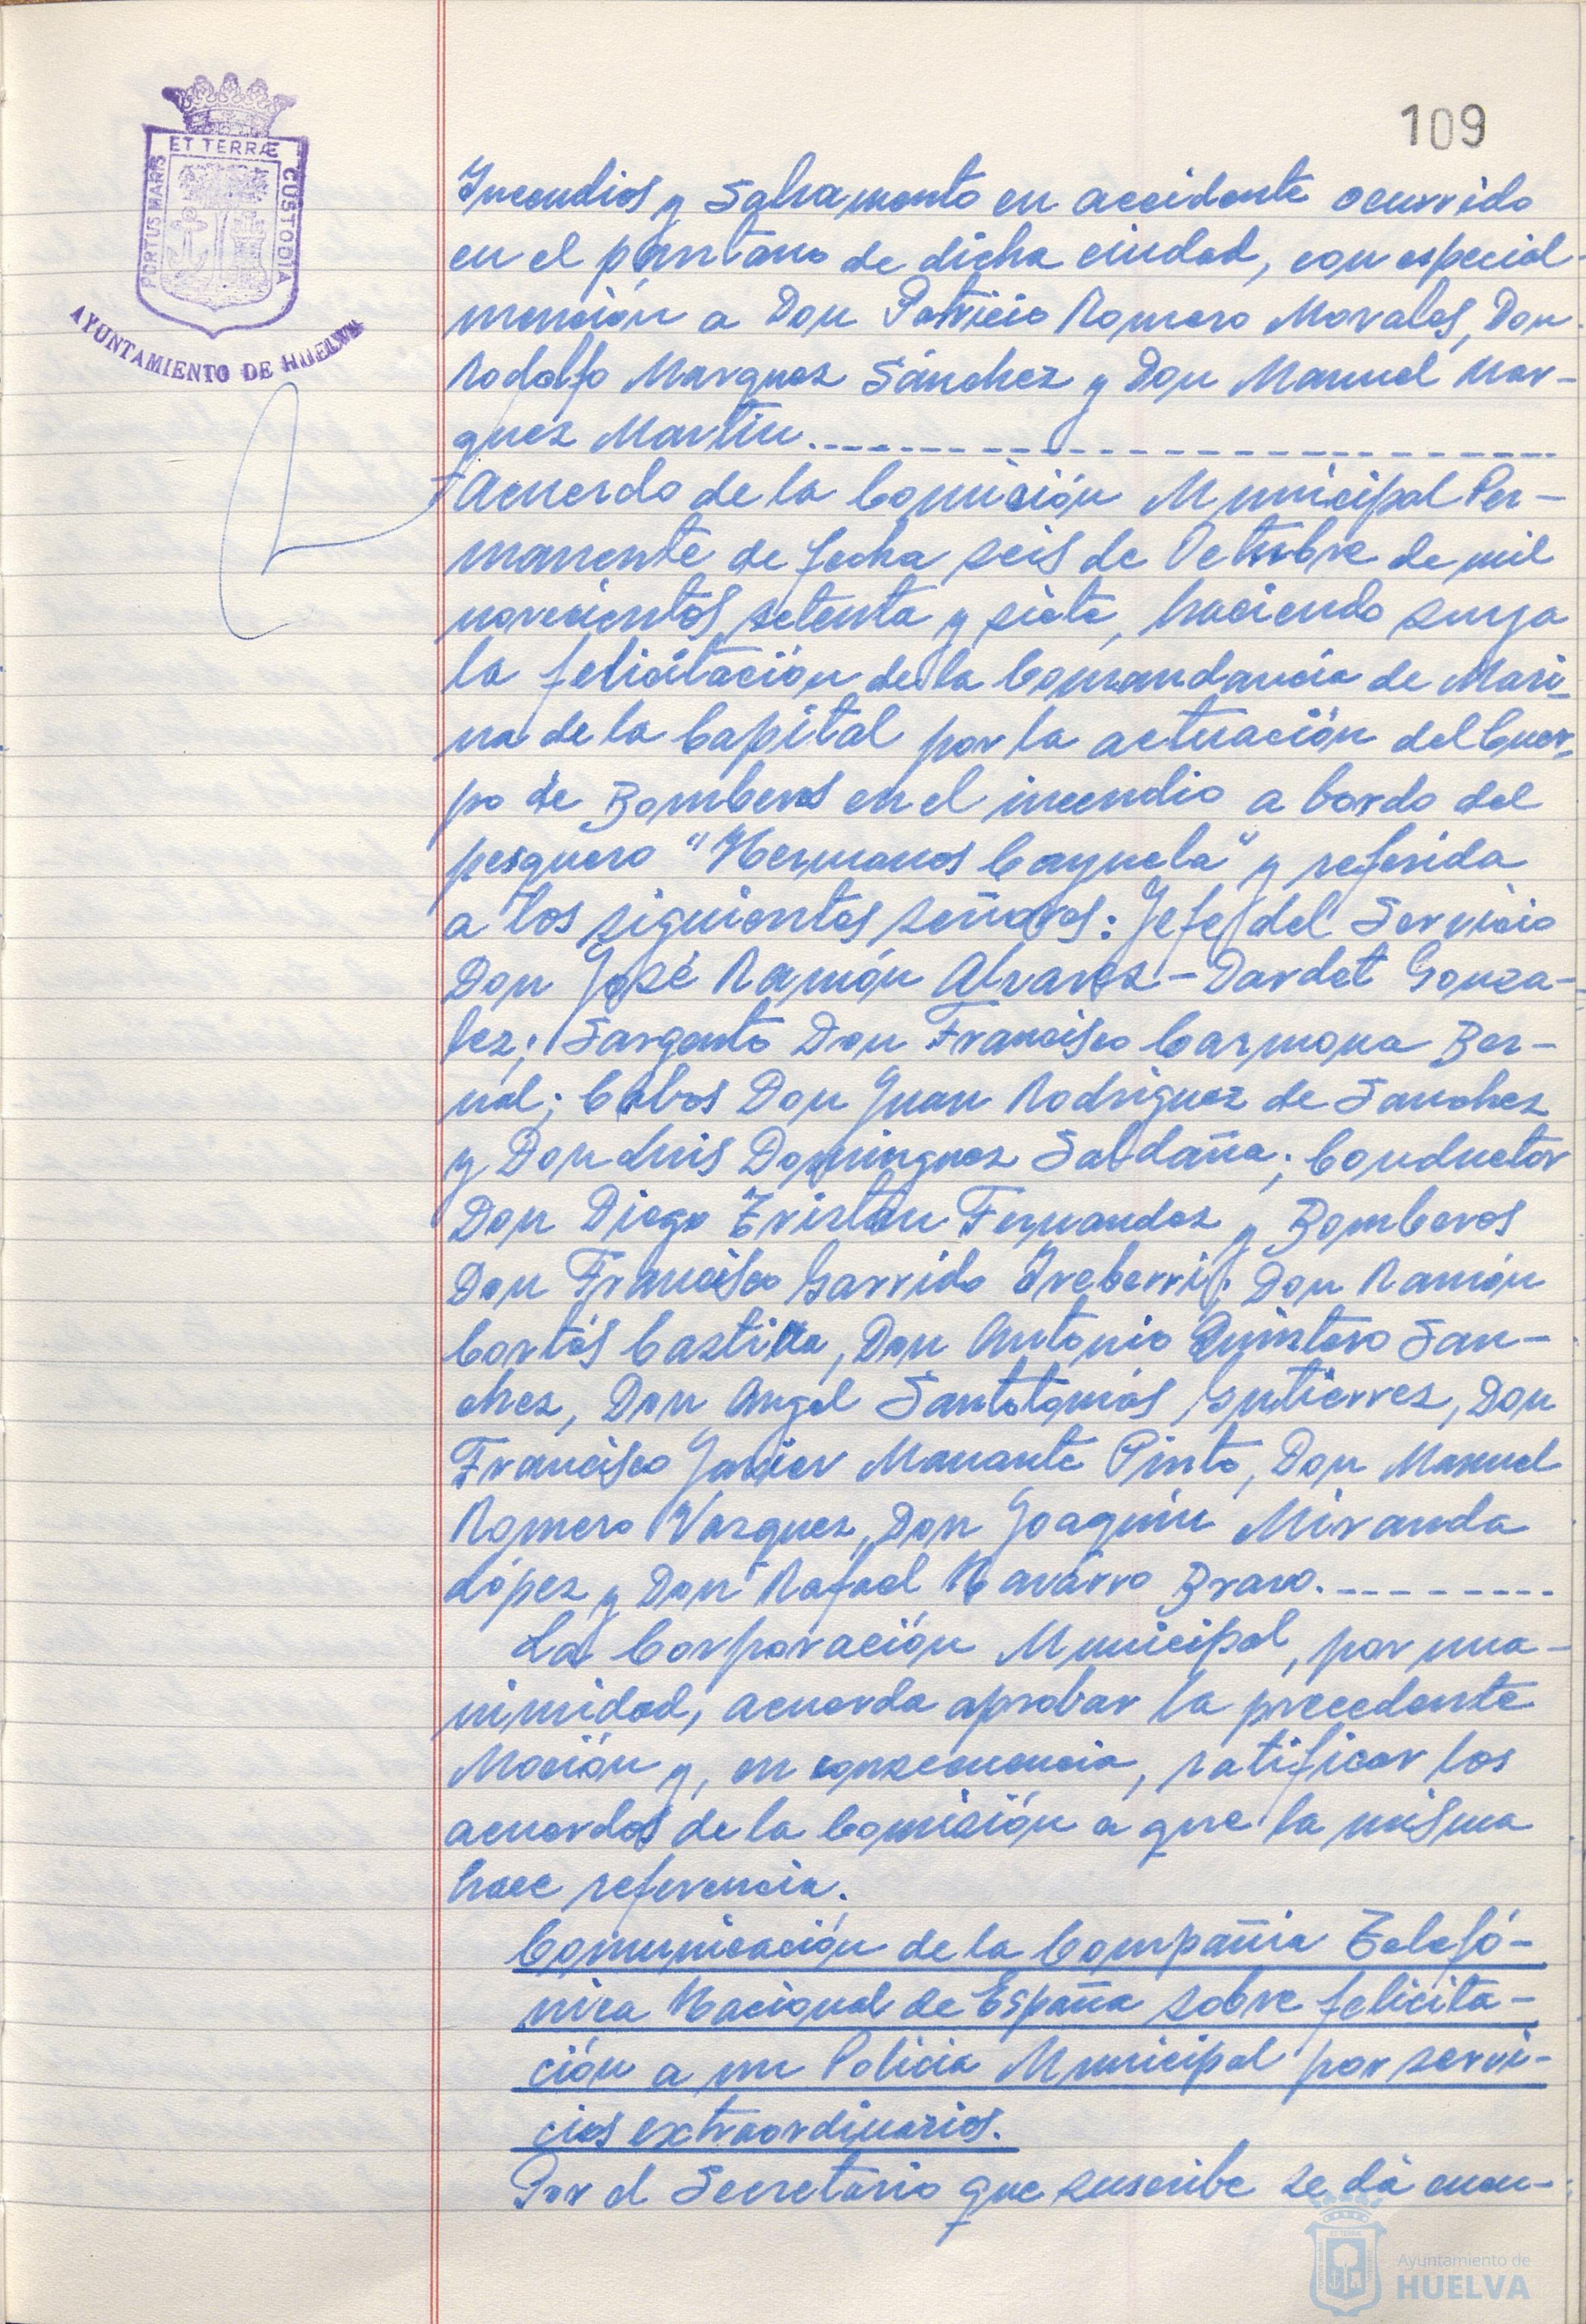 109
ET TERRÆ
PORTUS MARIS
CUSTODIA
AYUNTAMIENTO DE HUELVA
Incendios y Salvamento en accidente ocurrido
en el pantano de dicha ciudad, con especial
mención a Don Patricio Romero Morales, Don
Rodolfo Marquez Sánchez y Don Manuel Mar-
quez Martín.
Acuerdo de la Comisión Municipal Per-
manente de fecha seis de Octubre de mil
novecientos setenta y siete, haciendo suya
la felicitación de la Comandancia de Mari-
na de la Capital por la actuación del Cuer-
po de Bomberos en el incendio a bordo del
pesquero "Hermanos Cayuela" y referida
a los siguientes señores: Jefe del Servicio
Don José Ramón Alvarez-Dardet Gonza-
lez; Sargento Don Francisco Carmona Ber-
nal; Cabos Don Juan Rodriguez de Sanchez
y Don Luis Dominguez Saldaña; Conductor
Don Diego Tristán Fernandez y Bomberos
Don Francisco Garrido Ireberri; Don Ramón
Cortés Castilla, Don Antonio Quintero San-
chez, Don Angel Santotomás Gutierrez, Don
Francisco Javier Manante Pinto, Don Manuel
Romero Vazquez, Don Joaquín Miranda
López y Don Rafael Navarro Bravo.
La Corporación Municipal, por una-
nimidad, acuerda aprobar la precedente
Moción y, en consecuencia, ratificar los
acuerdos de la Comisión a que la misma
hace referencia.
Comunicación de la Compañia Telefó-
nica Nacional de España sobre felicita-
ción a un Policia Municipal por servi-
cios extraordinarios.
Por el Secretario que suscribe se dá cuen-
Ayuntamiento de
HUELVA